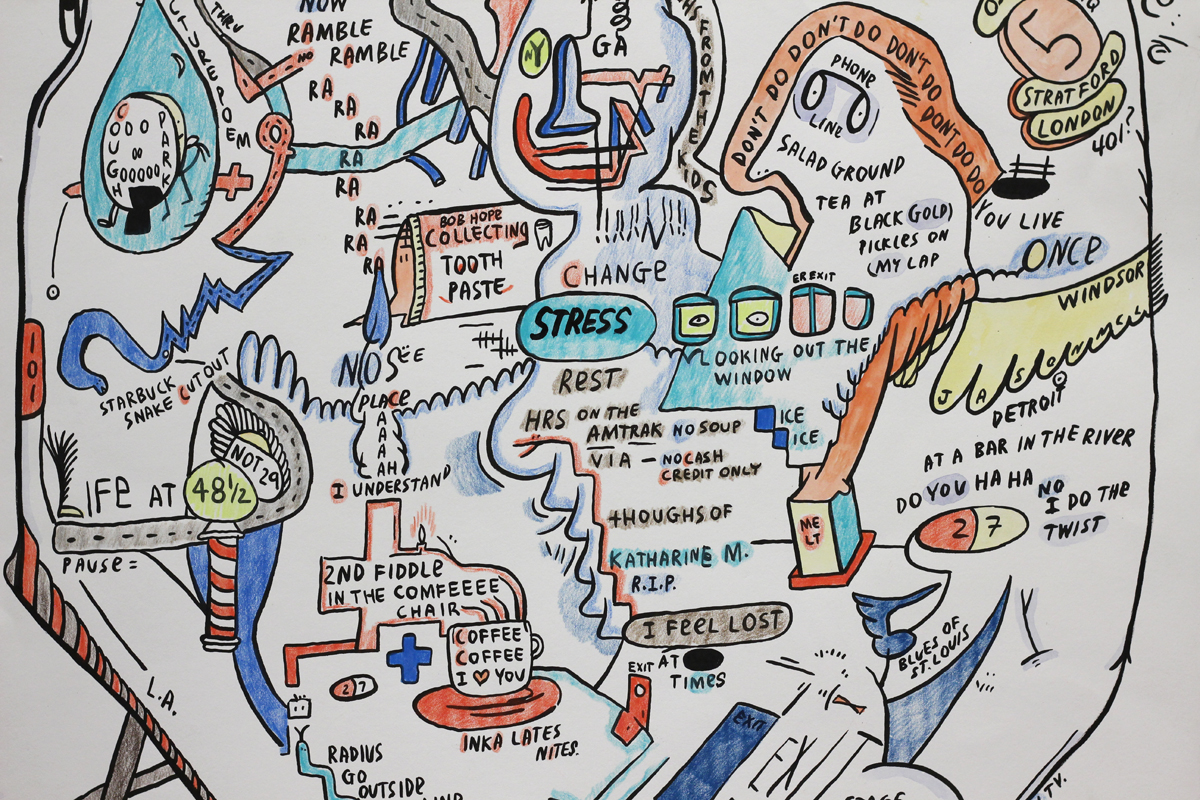 NOW
RAMBLE
RAMBLE
NO
RA
RA
RA
RA
RA
RA
RA
RA
THRU
POEM
NY
GA
FROM THE
KIDS
DON'T DO DON'T DO DON'T DO DON'T DO DONT DO DO
PHONE
LINE
5
STRATFORD
LONDON
401?
SALAD GROUND
TEA AT
BLACK GOLD)
PICKLES ON
(MY LAP
YOU LIVE
ONCE
WINDSOR
BOB HOPE
COLLECTING
TOOTH
PASTE
CHANGE
STRESS
ER EXIT
LOOKING OUT THE
WINDOW
101
STARBUCK
SNAKE CUT OUT
NOSEE
PLACE
A
A
A
AH
I UNDERSTAND
REST
HRS ON THE
AMTRAK NO SOUP
VIA — NO CASH
CREDIT ONLY
ICE
ICE
J A S
DETROIT
AT A BAR IN THE RIVER
DO YOU HA HA NO
I DO THE
TWIST
27
NOT 29
LIFE AT 48½
PAUSE =
THOUGHS OF
KATHARINE M.
R.I.P.
ME
LT
2ND FIDDLE
IN THE COMFEEEE
CHAIR
COFFEE
COFFEE
I ♥ YOU
INKA LATES
NITES.
27
I FEEL LOST
EXIT
AT
TIMES
BLUES OF
ST. LOUIS
L.A.
RADIUS
GO
OUTSIDE
EXIT
EXIT
TV.